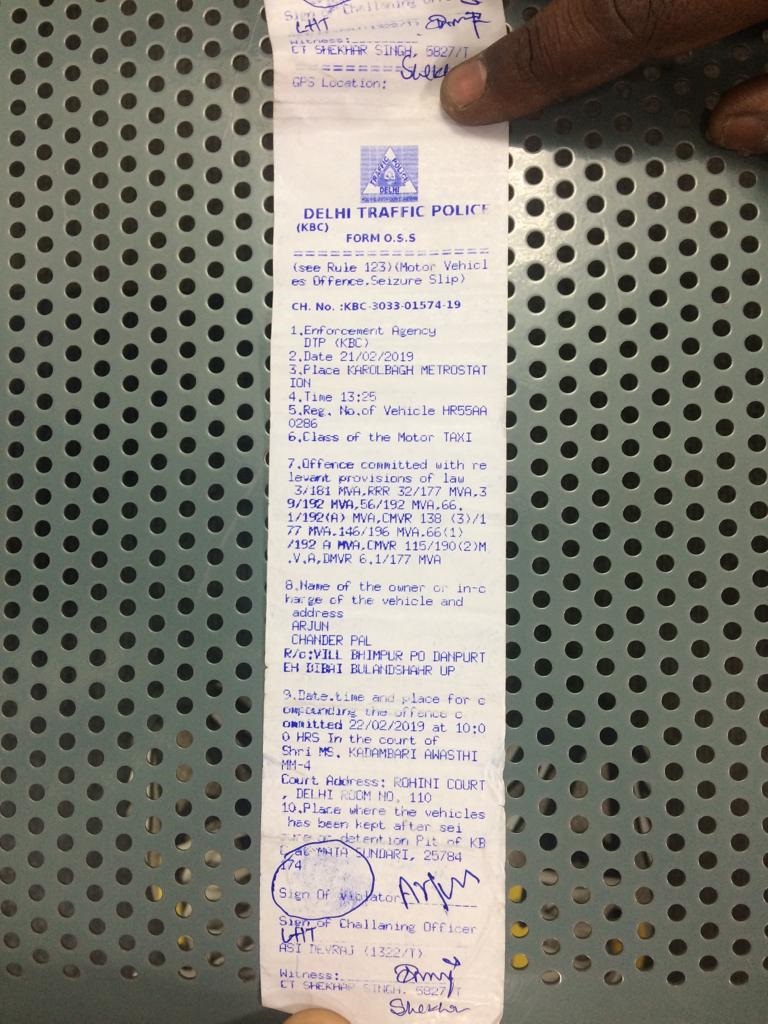 Sign of Challaning
LHT
Witness:
CT SHEKHAR SINGH, 5827/T
Shekhar
GPS Location:
TRAFFIC POLICE
DELHI
DELHI TRAFFIC POLICE
(KBC)
FORM O.S.S
(see Rule 123)(Motor Vehicl
es Offence,Seizure Slip)
CH. No. :KBC-3033-01574-19
1.Enforcement Agency
DTP (KBC)
2.Date 21/02/2019
3.Place KAROLBAGH METROSTAT
ION
4.Time 13:25
5.Reg. No.of Vehicle HR55AA
0286
6.Class of the Motor TAXI
7.Offence committed with re
levant provisions of law
3/181 MVA,RRR 32/177 MVA,3
9/192 MVA,56/192 MVA,66.
1/192(A) MVA,CMVR 138 (3)/1
77 MVA,146/196 MVA,66(1)
/192 A MVA,CMVR 115/190(2)M
.V.A,DMVR 6.1/177 MVA
8.Name of the owner or in-c
harge of the vehicle and
address
ARJUN
CHANDER PAL
R/o:VILL BHIMPUR PO DANPURT
EH DIBAI BULANDSHAHR UP
9.Date,time and place for c
ompounding the offence c
ommitted 22/02/2019 at 10:0
0 HRS In the court of
Shri MS. KADAMBARI AWASTHI
MM-4
Court Address: ROHINI COURT
, DELHI ROOM NO. 110
10.Place where the vehicles
has been kept after sei
zure or detention Pit of KB
C at MATA SUNDARI, 25784
174
Sign Of Violator Arjun
Sign of Challaning Officer
LHT
ASI DEVRAJ (1322/T)
Witness:
CT SHEKHAR SINGH, 5827/T
Shekhar